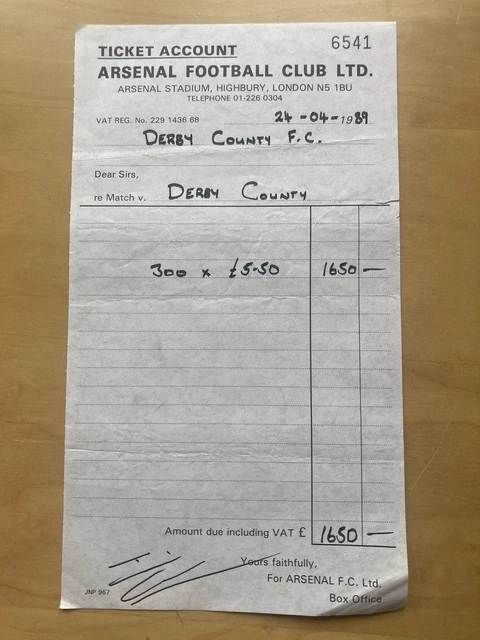 6541
TICKET ACCOUNT
ARSENAL FOOTBALL CLUB LTD.
ARSENAL STADIUM, HIGHBURY, LONDON N5 1BU
TELEPHONE 01-226 0304
VAT REG. No. 229 1436 68 24-04-1989
DERBY COUNTY F.C.
Dear Sirs,
re Match v. DERBY COUNTY
300 x £5-50 1650 —
Amount due including VAT £ 1650 —
Yours faithfully,
For ARSENAL F.C. Ltd.
JNP 967 Box Office